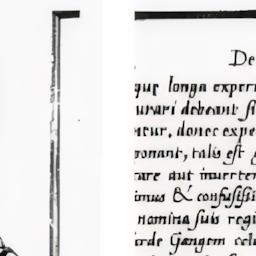 De
que longa experi
urari debeant si
etur, donec expe
ponant, talis est
rare aut inverten
imus & confusissi
nomina suis regi
orde Gangem cele